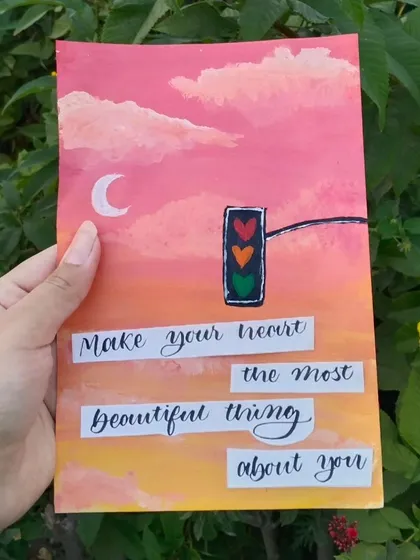 Make your heart
the most
beautiful thing
about you